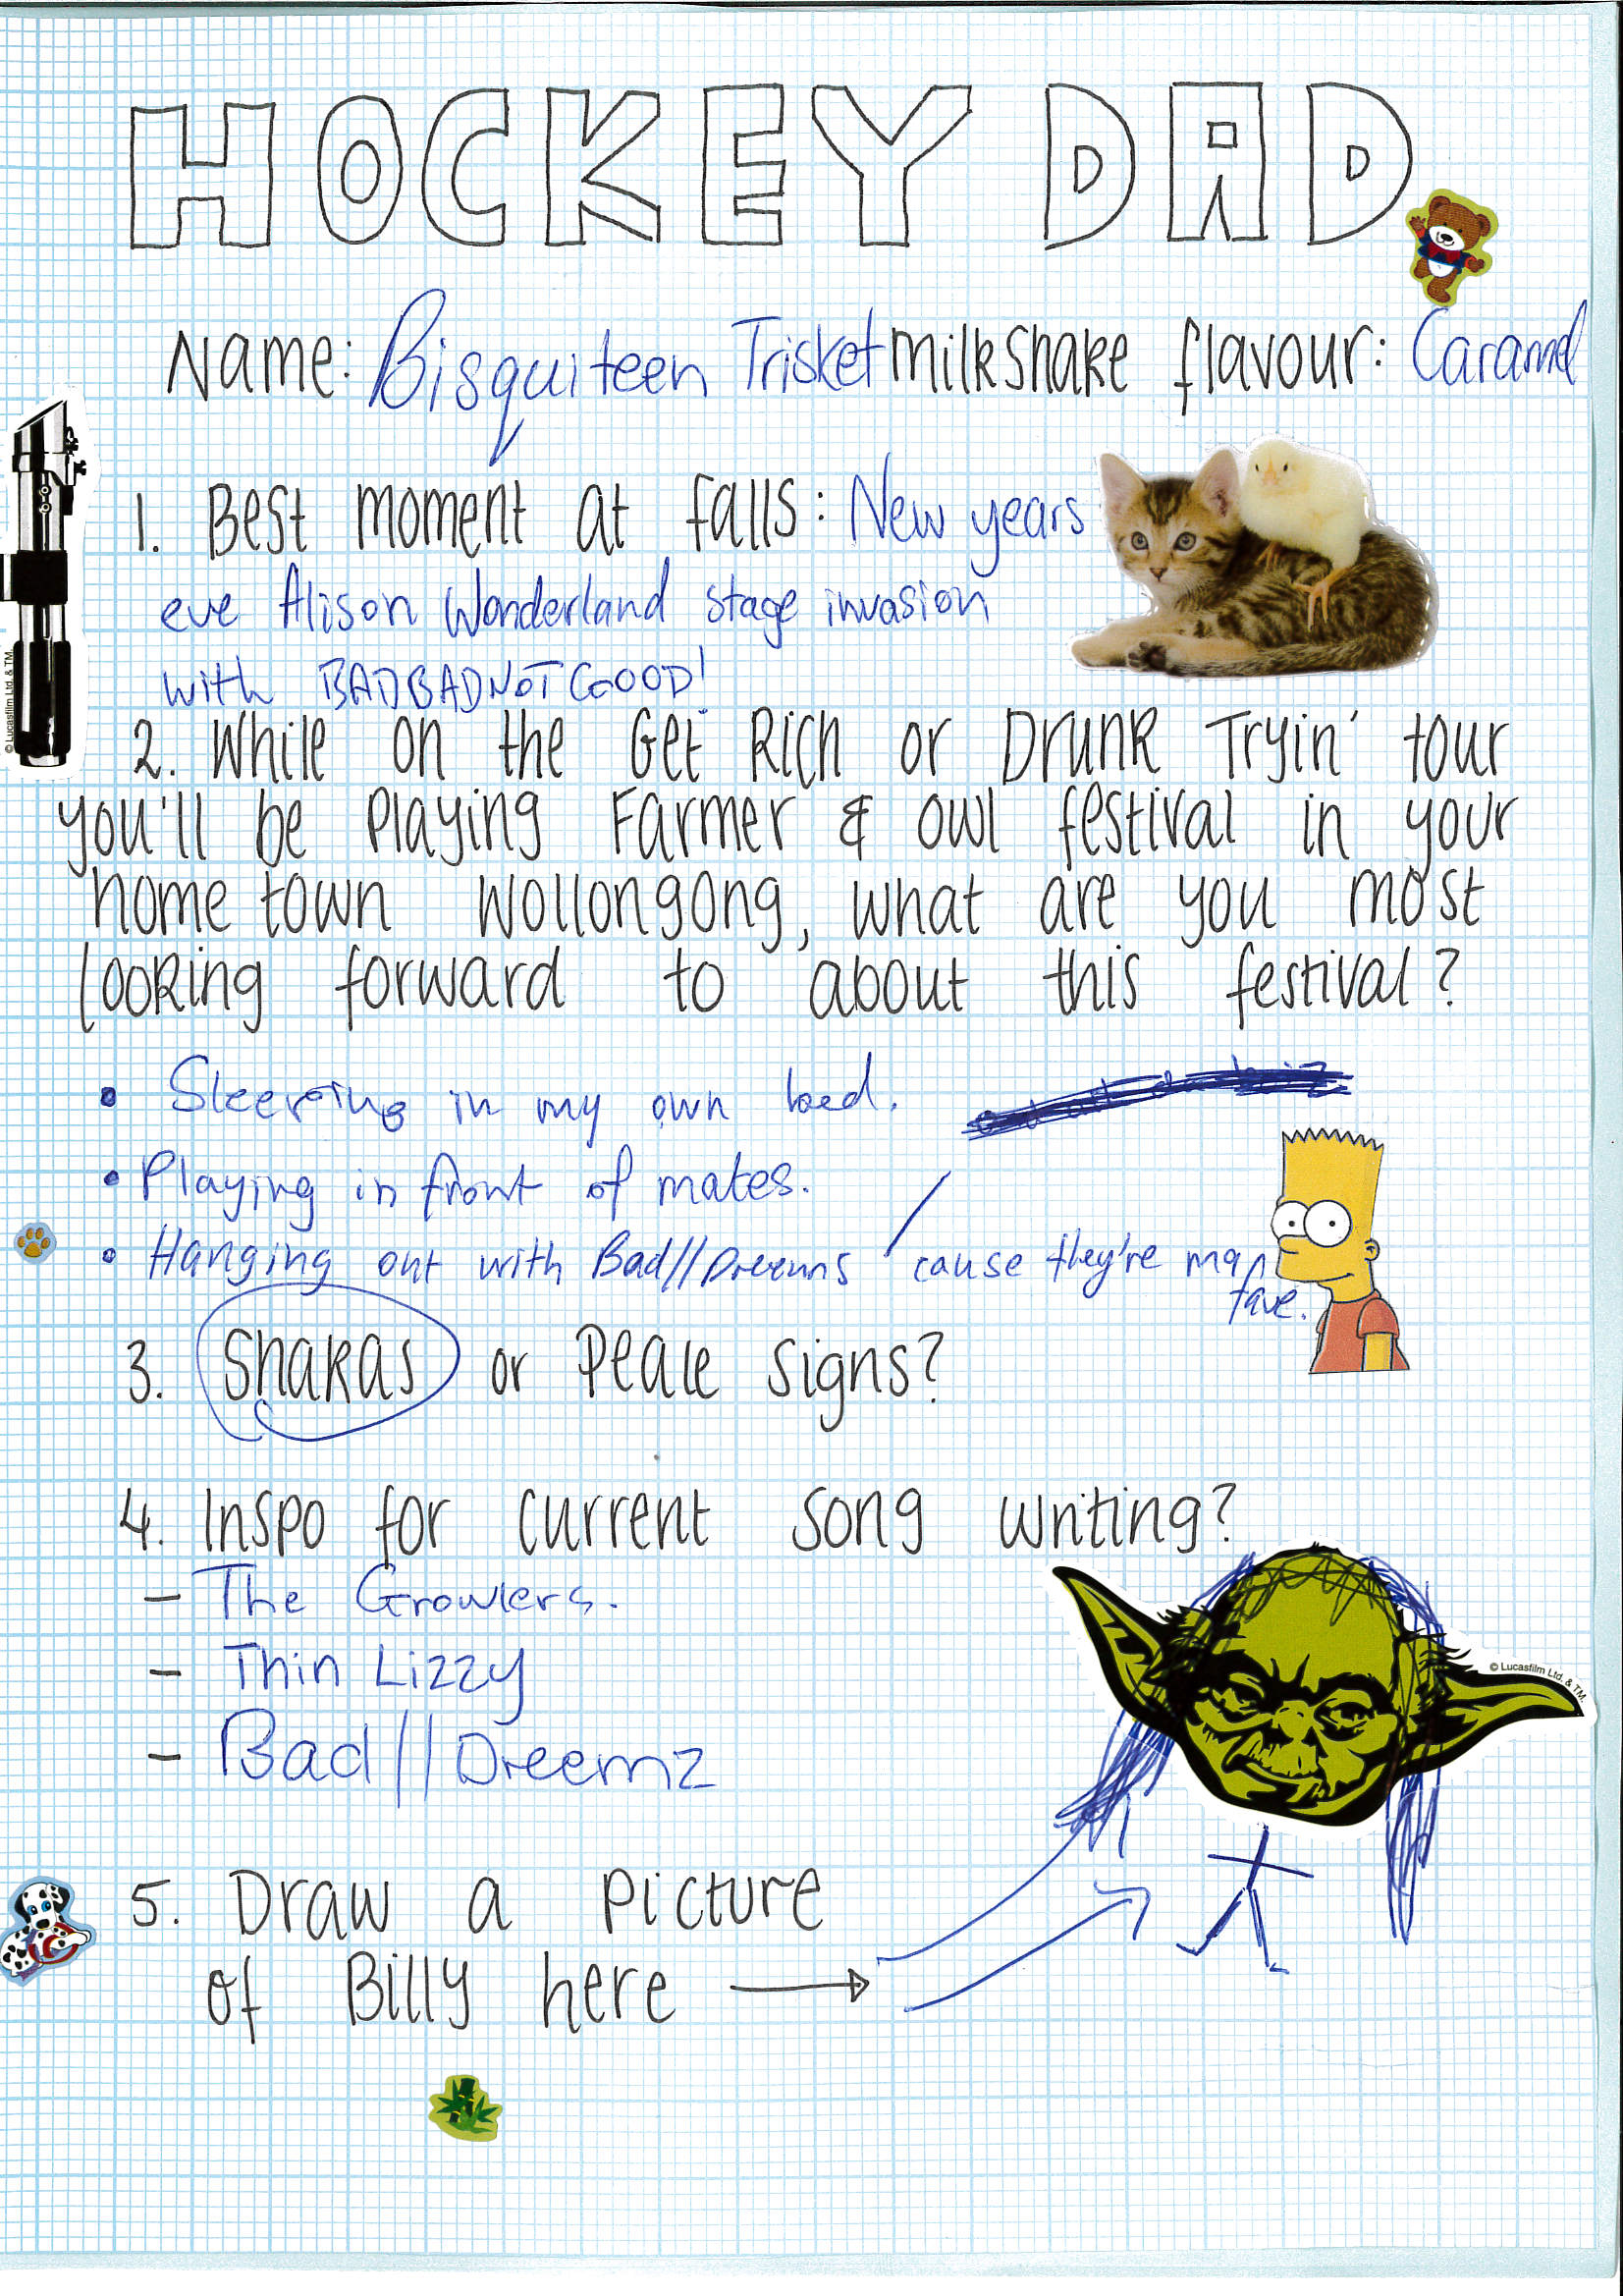 HOCKEY DAD
Name: Bisquiteen Trisket milkshake flavour: Caramel
1. Best moment at falls: New years
eve Alison Wonderland stage invasion
with BADBADNOTGOOD!
2. While on the Get Rich or Drunk Tryin' tour
you'll be playing Farmer & Owl festival in your
home town Wollongong, what are you most
looking forward to about this festival?
• Sleeping in my own bed.
• Playing in front of mates.
• Hanging out with Bad//Dreems / cause they're ma
fave.
3. Shakas or Peace signs?
4. Inspo for current song writing?
- The Growlers.
- Thin Lizzy
- Bad//Dreemz
5. Draw a picture
of Billy here →
© Lucasfilm Ltd. & TM.
© Lucasfilm Ltd. & TM.